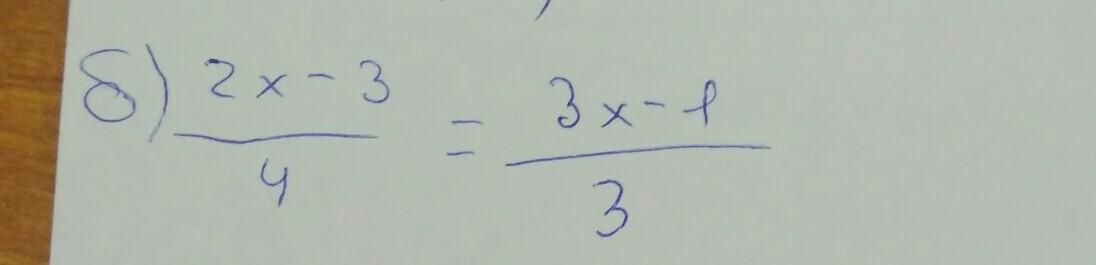 б) (2x-3)/4 = (3x-1)/3